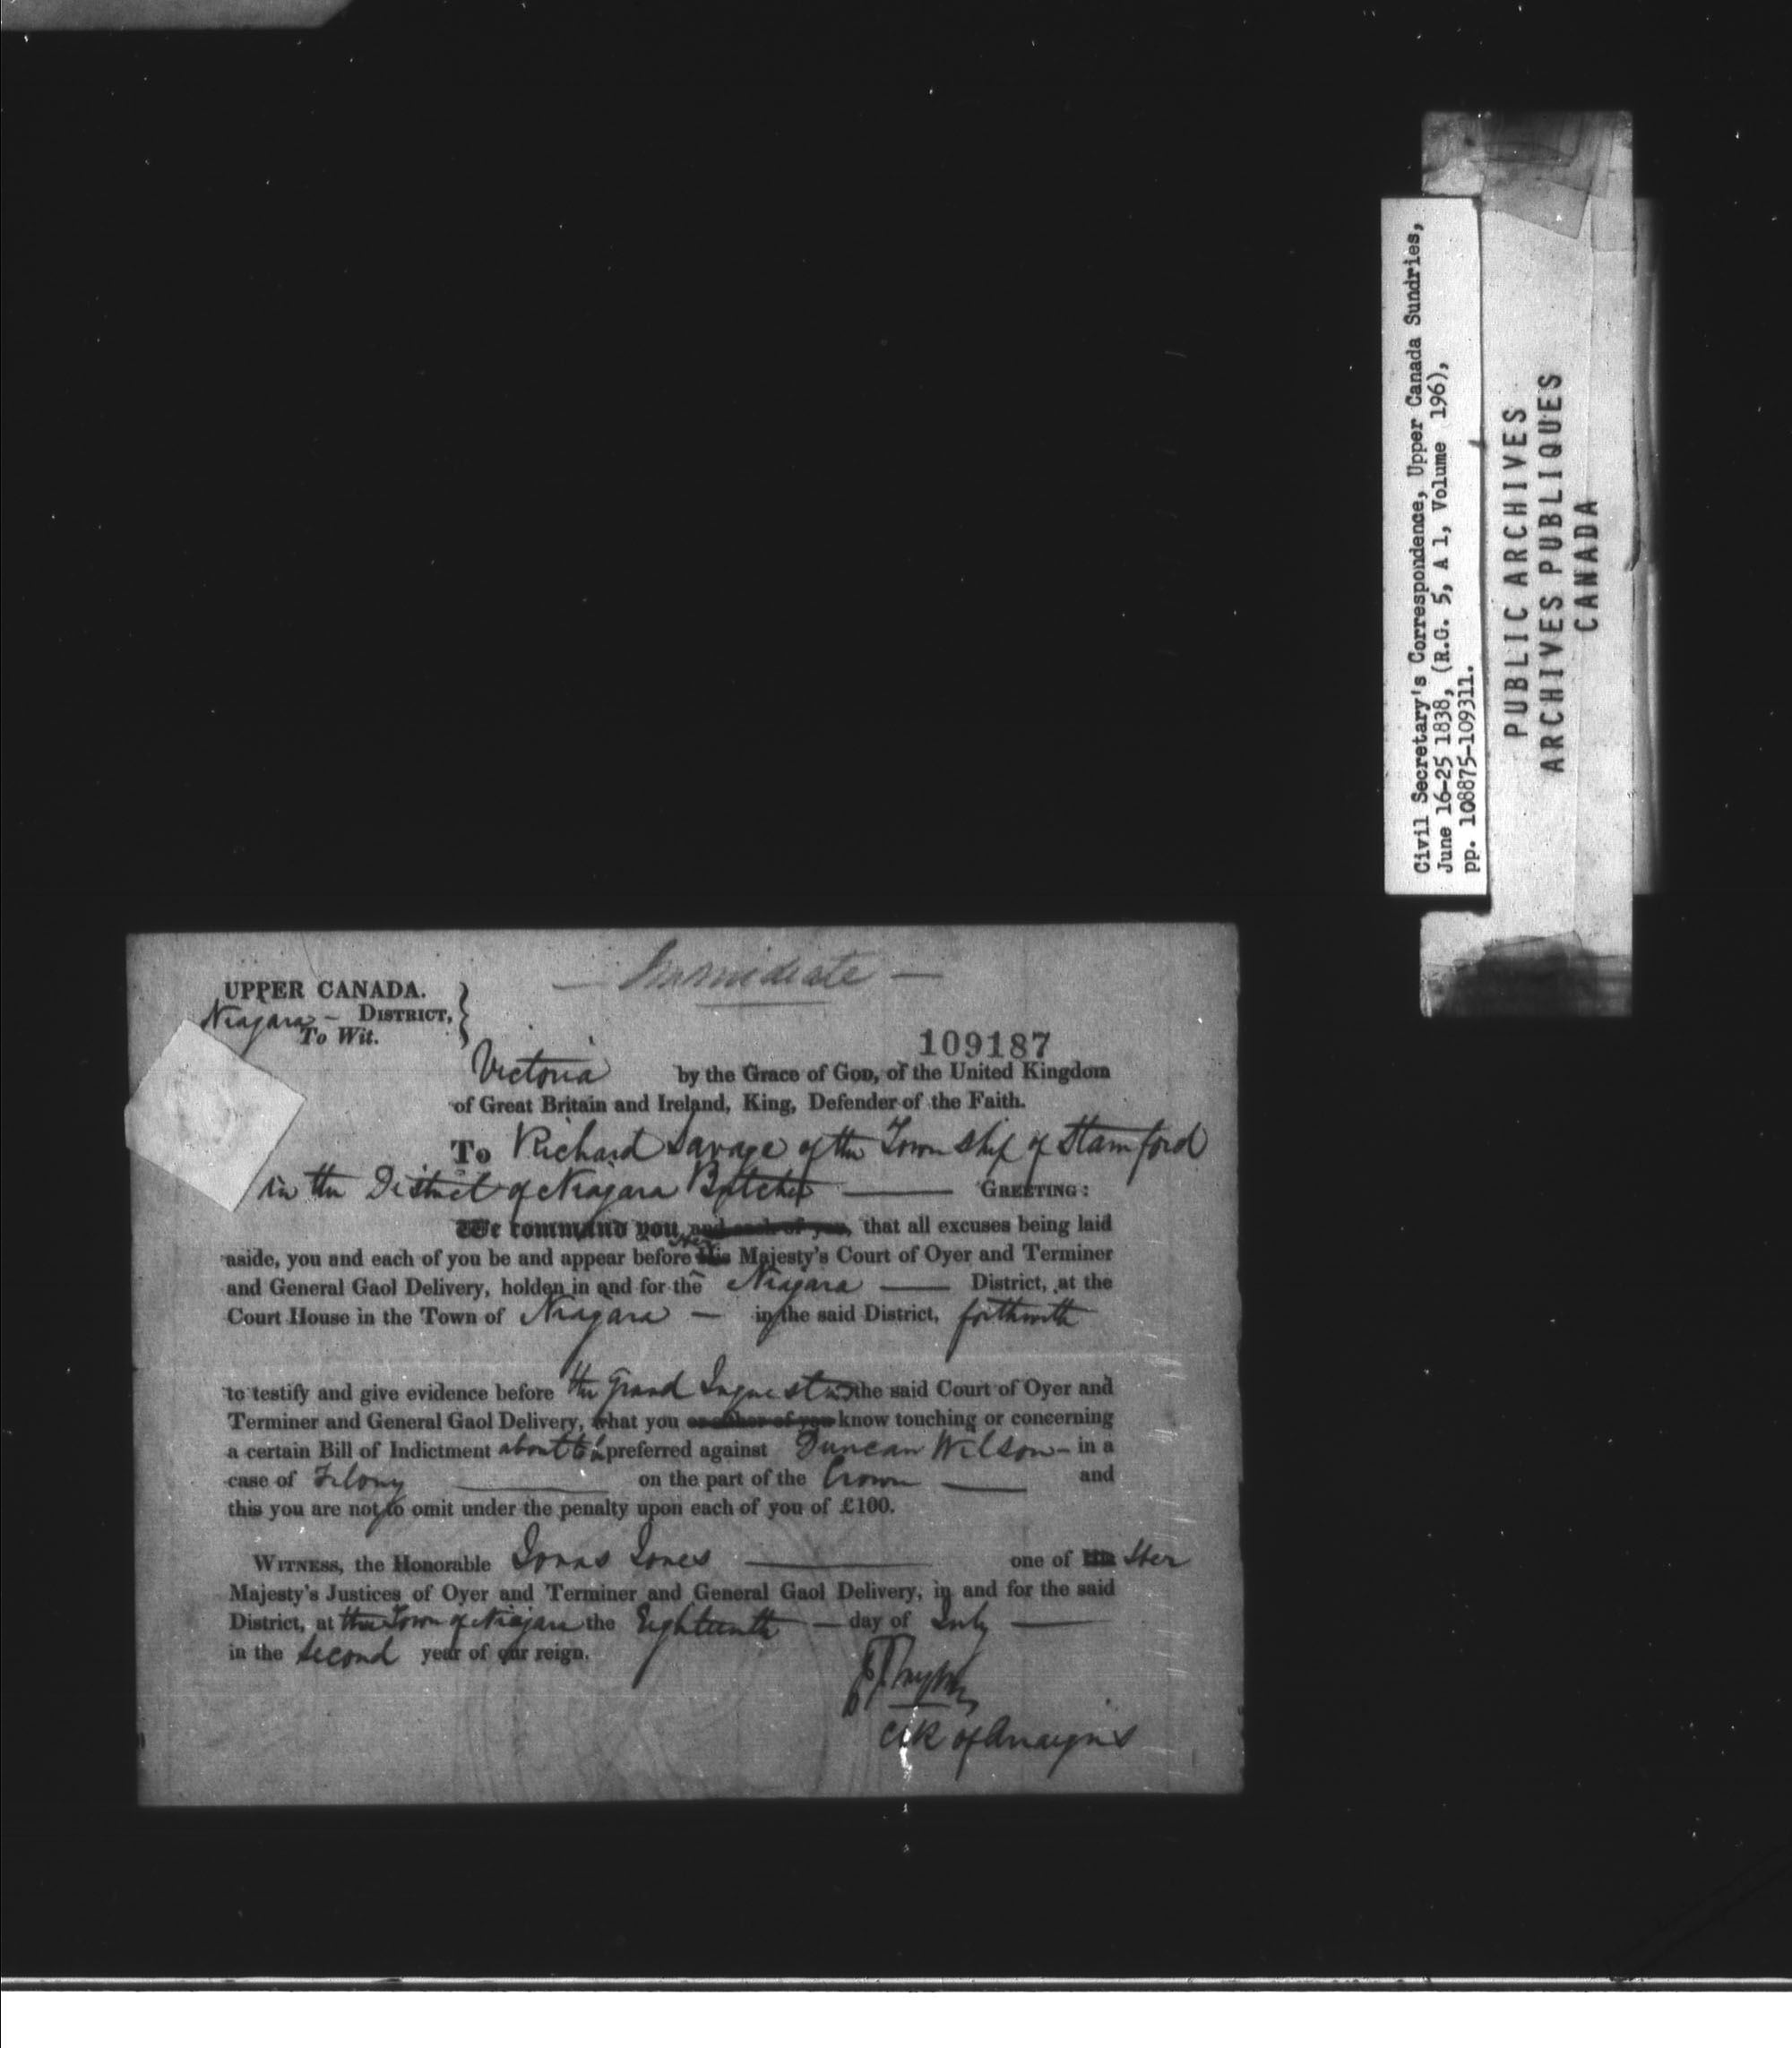 — Immidiate —
UPPER CANADA.
Niagara — DISTRICT,
To Wit.
109187
Victoria by the Grace of GOD, of the United Kingdom
of Great Britain and Ireland, King, Defender of the Faith.
To Richard Savage of the Township of Stamford
in the District of Niagara Butcher — GREETING:
We command you and each of you, that all excuses being laid
aside, you and each of you be and appear before His Her Majesty's Court of Oyer and Terminer
and General Gaol Delivery, holden in and for the Niagara — District, at the
Court House in the Town of Niagara — in the said District, forthwith
to testify and give evidence before the Grand Inquest in the said Court of Oyer and
Terminer and General Gaol Delivery, what you or either of you know touching or concerning
a certain Bill of Indictment about to be preferred against Duncan Wilson — in a
case of Felony — on the part of the Crown — and
this you are not to omit under the penalty upon each of you of £100.
WITNESS, the Honorable Jonas Jones — one of His Her
Majesty's Justices of Oyer and Terminer and General Gaol Delivery, in and for the said
District, at the Town of Niagara the Eighteenth — day of July —
in the second year of our reign.
Clk of Arraigns
Civil Secretary's Correspondence, Upper Canada Sundries,
June 16-25 1838, (R.G. 5, A 1, Volume 196),
pp. 108875-109311.
PUBLIC ARCHIVES
ARCHIVES PUBLIQUES
CANADA